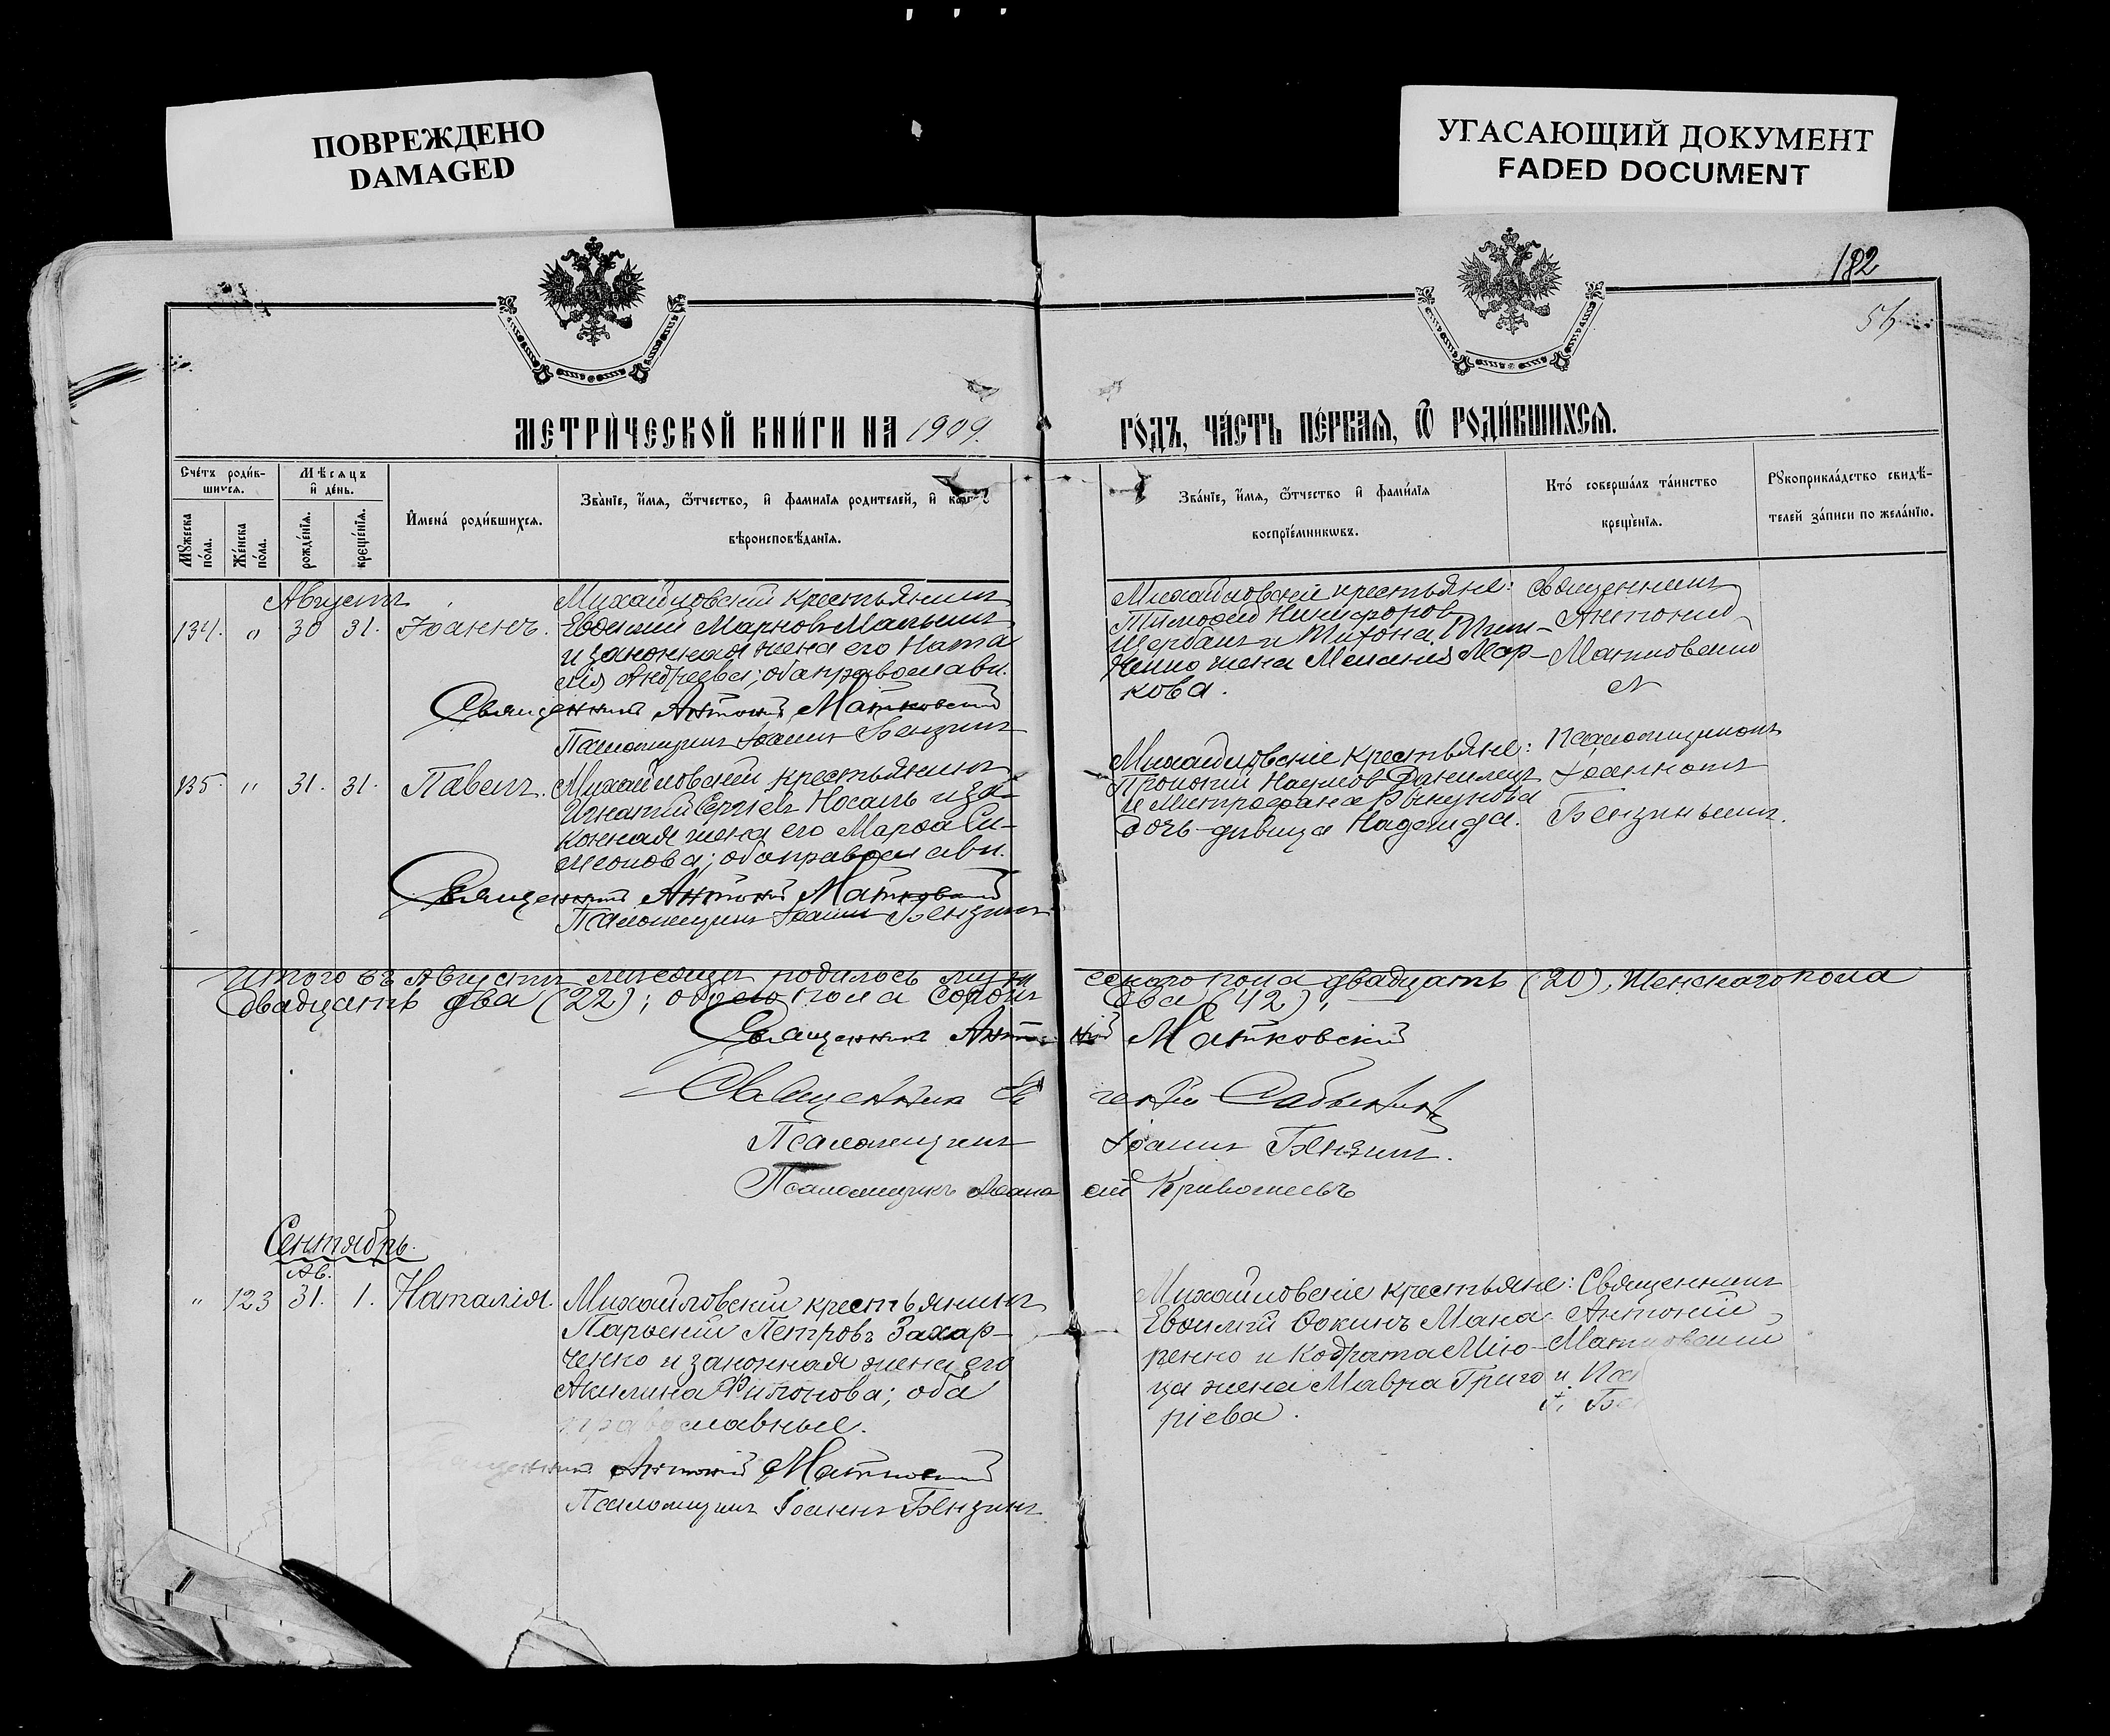 ПОВРЕЖДЕНО
DAMAGED
УГАСАЮЩИЙ ДОКУМЕНТ
FADED DOCUMENT
182
МЕТРИ́ЧЕСКОЙ КНИ́ГИ НА 1909.
ГОДЪ, ЧА́СТЬ ПЕ́РВАЯ, Ѿ РОДИ́ВШИХСЯ.
Сче́тъ роди́в-
шихся.
Мꙋжеска по́ла.
Же́нска по́ла.
Мѣсяцъ
и де́нь.
рожде́нїя.
креще́нїя.
Имена́ роди́вшихся.
Зва́нїе, и́мя, ѻ҆́тчество, и фамилїя родителей, и
вѣроисповѣданїя.
Зва́нїе, и́мя, ѻ҆́тчество и фами́лїя
воспрїе́мникѡвъ.
Кто́ соверша́лъ та́инство
креще́нїя.
Рꙋкоприкла́дство свидѣ́-
телей за́писи по жела́нїю.
Августъ
134. " 30 31. Іоаннъ.
Михайловскій крестьянинъ
Евфимій Марковъ
и законная жена его Ната
лія Андреева; оба православн.
Священникъ Антоній Матковскій
Псаломщикъ Іоаннъ Бензинъ
Михайловскіе крестьяне:
Тимофей Никифоровъ
Щербакъ и Тихона
жена Меланія Мар-
кова.
Священникъ
Антоній
Матковскій
и
Псаломщикомъ
Іоанномъ
Бензинымъ.
135. " 31. 31. Павелъ.
Михайловскій крестьянинъ
Игнатій Сергіевъ Носаль и за-
конная жена его Марфа Си-
меонова; оба православн.
Священникъ Антоній Матковскій
Псаломщикъ Іоаннъ Бензинъ
Михайловскіе крестьяне:
Прокопій Наумовъ Данилецъ
и Митрофана
дочь-дѣвица Надежда.
Итого въ Августѣ мѣсяцѣ родилось муже
скаго пола двадцать (20), женскаго пола
двадцать два (22); обоего пола сорокъ
два (42).
Священникъ Антоній Матковскій
Священникъ Евгеній
Псаломщикъ Іоаннъ Бензинъ.
Псаломщикъ Аѳанасій Кривошеевъ
Сентябрь.
Ав.
" 123 31. 1. Наталія
Михайловскій крестьянинъ
Парѳеній Петровъ Захар-
ченко и законная жена его
Акилина Филонова; оба
православные.
Священникъ Антоній Матковскій
Псаломщикъ Іоаннъ Бензинъ
Михайловскіе крестьяне:
Евфимій Ѳокинъ Мака-
ренко и Кодрата Мію-
ца жена Мавра Григо
ріева.
Священникъ
Антоній
Матковскій
и